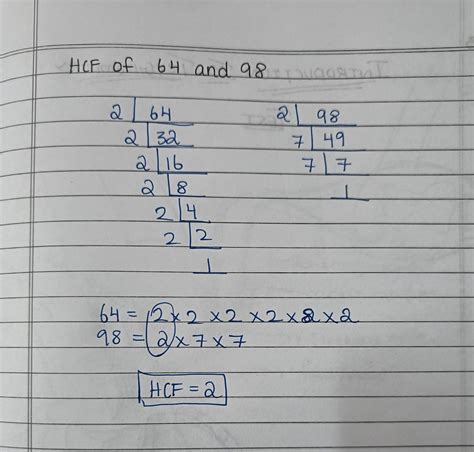 HCF of 64 and 98
2 | 64
2 | 32
2 | 16
2 | 8
2 | 4
2 | 2
1
2 | 98
7 | 49
7 | 7
1
64 = 2 × 2 × 2 × 2 × 2 × 2
98 = 2 × 7 × 7
HCF = 2